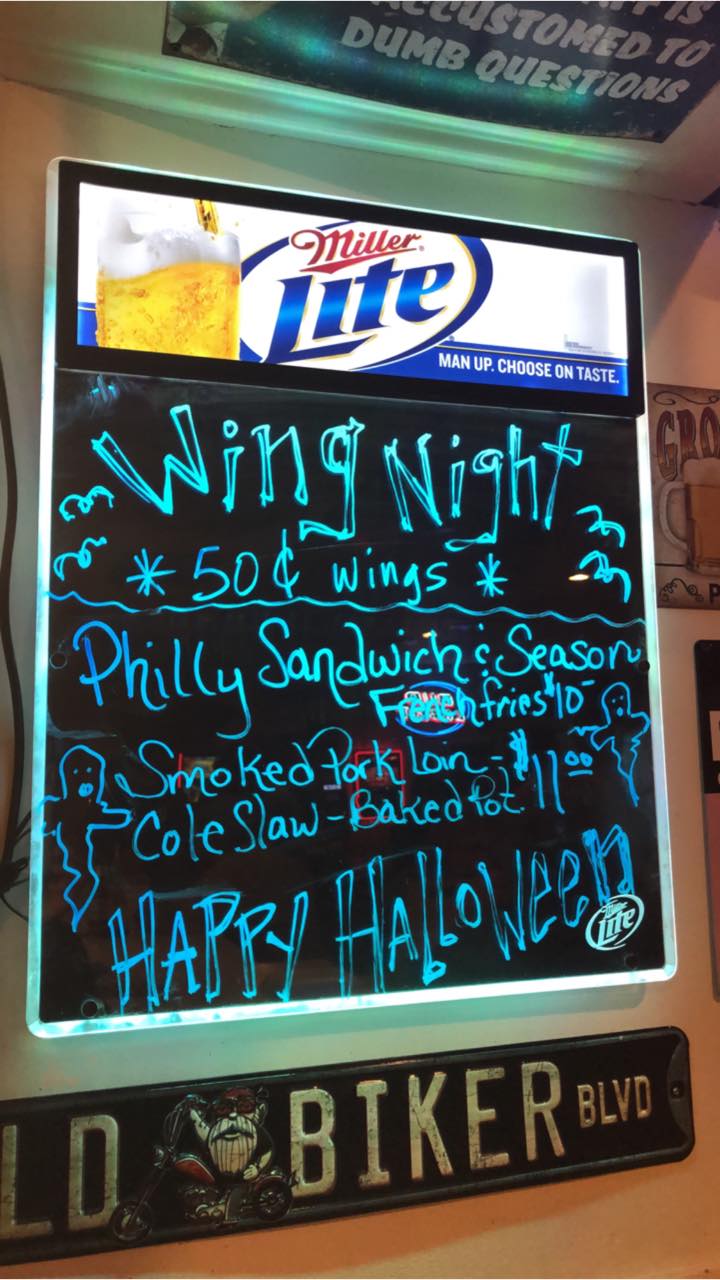 ACCUSTOMED TO
DUMB QUESTIONS
Miller
Lite
MAN UP. CHOOSE ON TASTE.
Wing Night
* 50¢ wings *
Philly Sandwich & Season
French fries $10-
Smoked Pork Loin - $11.00
Cole Slaw - Baked Pot.
HAPPY HALLOWEEN
Miller
Lite
GRO
LD BIKER BLVD